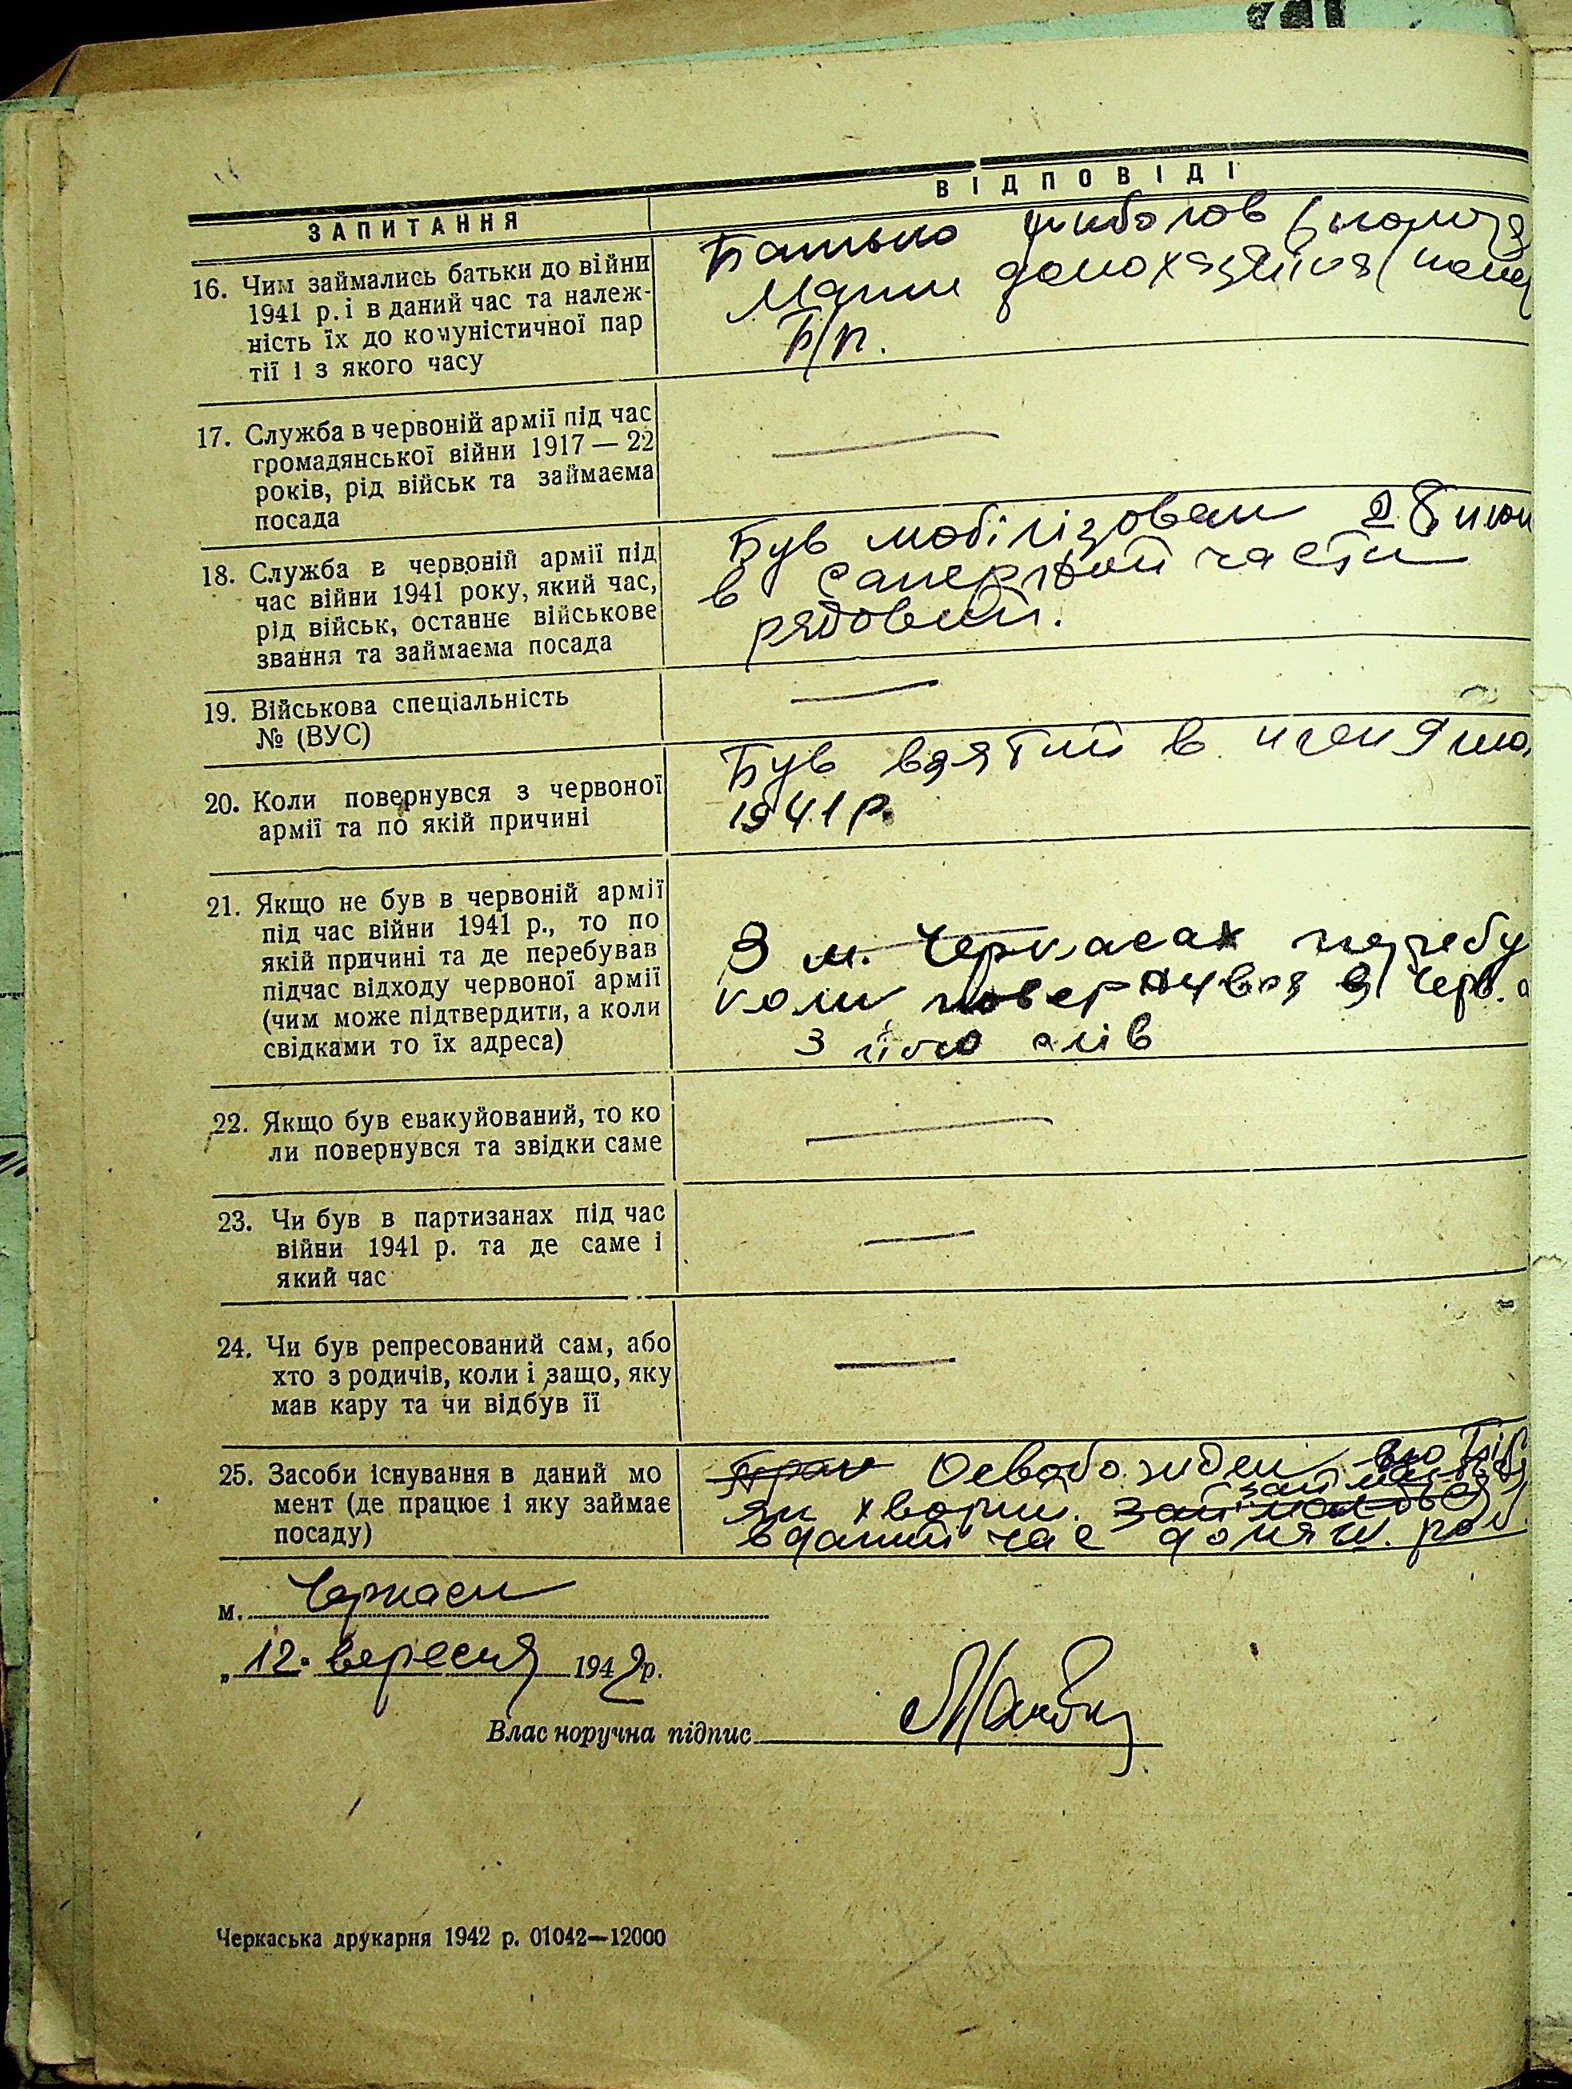 ВІДПОВІДІ
ЗАПИТАННЯ
16. Чим займались батьки до війни
1941 р. і в даний час та належ-
ність їх до комуністичної пар
тії і з якого часу
Батько рибалов
Мати домохазяйка
Б/п.
17. Служба в червоній армії під час
громадянської війни 1917 — 22
років, рід військ та займаєма
посада
—
18. Служба в червоній армії під
час війни 1941 року, який час,
рід військ, останнє військове
звання та займаєма посада
Був мобілізован 28 июн
в саперной части
рядовий.
19. Військова спеціальність
№ (ВУС)
—
20. Коли повернувся з червоної
армії та по якій причині
Був взятий в плен 9
1941 р.
21. Якщо не був в червоній армії
під час війни 1941 р., то по
якій причині та де перебував
підчас відходу червоної армії
(чим може підтвердити, а коли
свідками то їх адреса)
З м. Черкасах перебу
коли повернувся з Черв. а
З
22. Якщо був евакуйований, то ко
ли повернувся та звідки саме
—
23. Чи був в партизанах під час
війни 1941 р. та де саме і
який час
—
24. Чи був репресований сам, або
хто з родичів, коли і защо, яку
мав кару та чи відбув її
—
25. Засоби існування в даний мо
мент (де працює і яку займає
посаду)
Освобожден
як хворий.
в даний час домаш. роб.
м. Черкаси
„ 12. вересня 1942 р.
Власноручна підпис
Черкаська друкарня 1942 р. 01042—12000